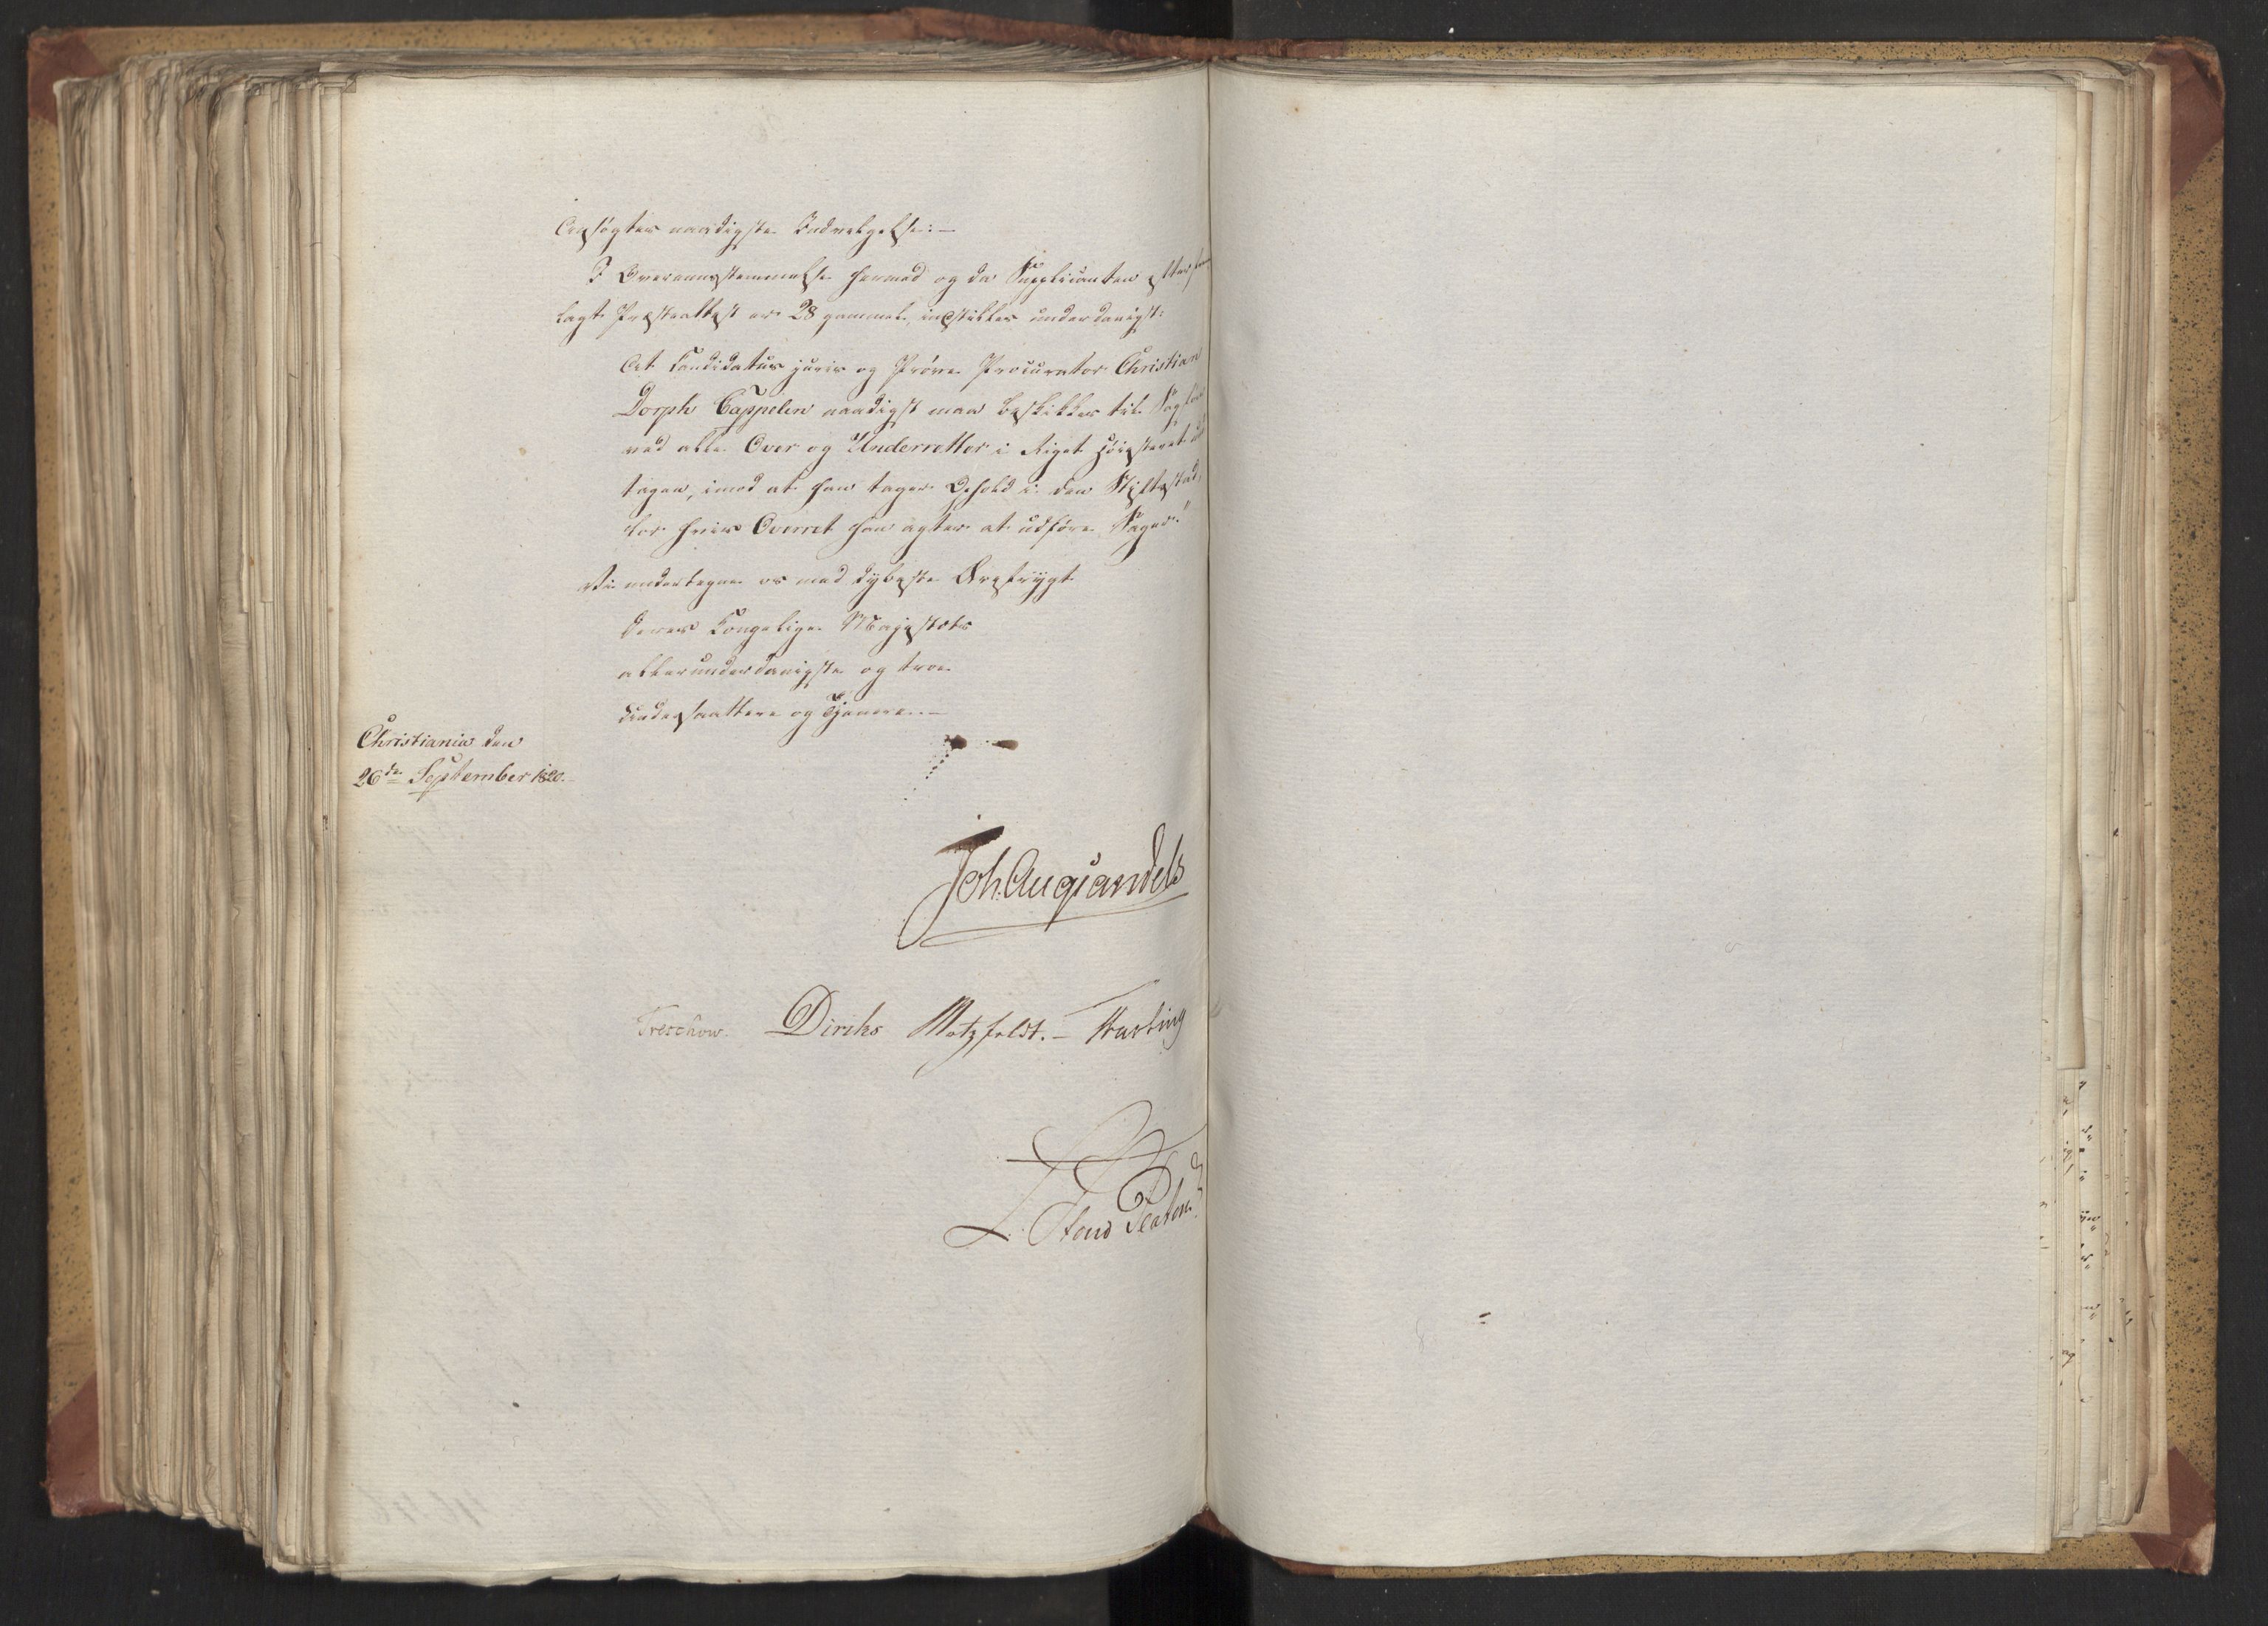 Ansøgtes naadigste Indvelgelse:—
I Overeensstemmelse hermed og da Supplicanten efter frem
lagt Præsteattest er 28 gammel, indstilles underdanigst:
At Candidatus juris og Prøve Procurator Christian
Dorph Cappelen naadigst maa beskikkes til Sagfører
ved alle Over og Underretter i Riget Høiesteret und
tagen, imod at han tager Ophold i den Stiftsstad,
for hvis Overret han agter at udføre Sager."
Vi undertegne os med dybeste Ærefrygt
Deres Kongelige Majestæts
allerunderdanigste og troe
Undersaattere og Tjenere.—
Christiania den
26de September 1820.
Joh. Aug Sandels
Treschow. Diriks Motzfeldt.— Fasting